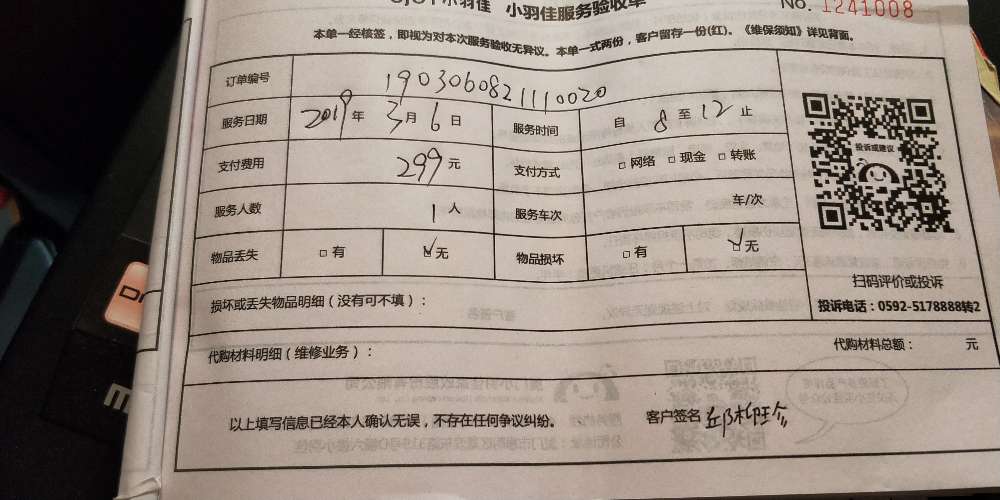 小羽佳 小羽佳服务验收单 No. 1241008
本单一经核签，即视为对本次服务验收无异议。本单一式两份，客户留存一份(红)。《维保须知》详见背面。
订单编号 1903060821110020
服务日期 2019年 3月 6日 服务时间 自 8 至 12 止
支付费用 299元 支付方式 □网络 □现金 □转账
服务人数 1人 服务车次 车/次
物品丢失 □有 ☑无 物品损坏 □有 ☑无
投诉或建议
扫码评价或投诉
投诉电话：0592-5178888转2
损坏或丢失物品明细（没有可不填）：
代购材料明细（维修业务）： 代购材料总额： 元
以上填写信息已经本人确认无误，不存在任何争议纠纷。 客户签名